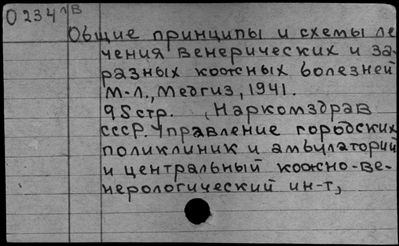 О234 ЛВ
Общие принципы и схемы ле
чения венерических и за-
разных кожных болезней
М-Л., Медгиз, 1941.
95 стр. , Наркомздрав
СССР. Управление городских
поликлиник и амбулаторий
и центральный кожно-ве-
нерологический ин-т,